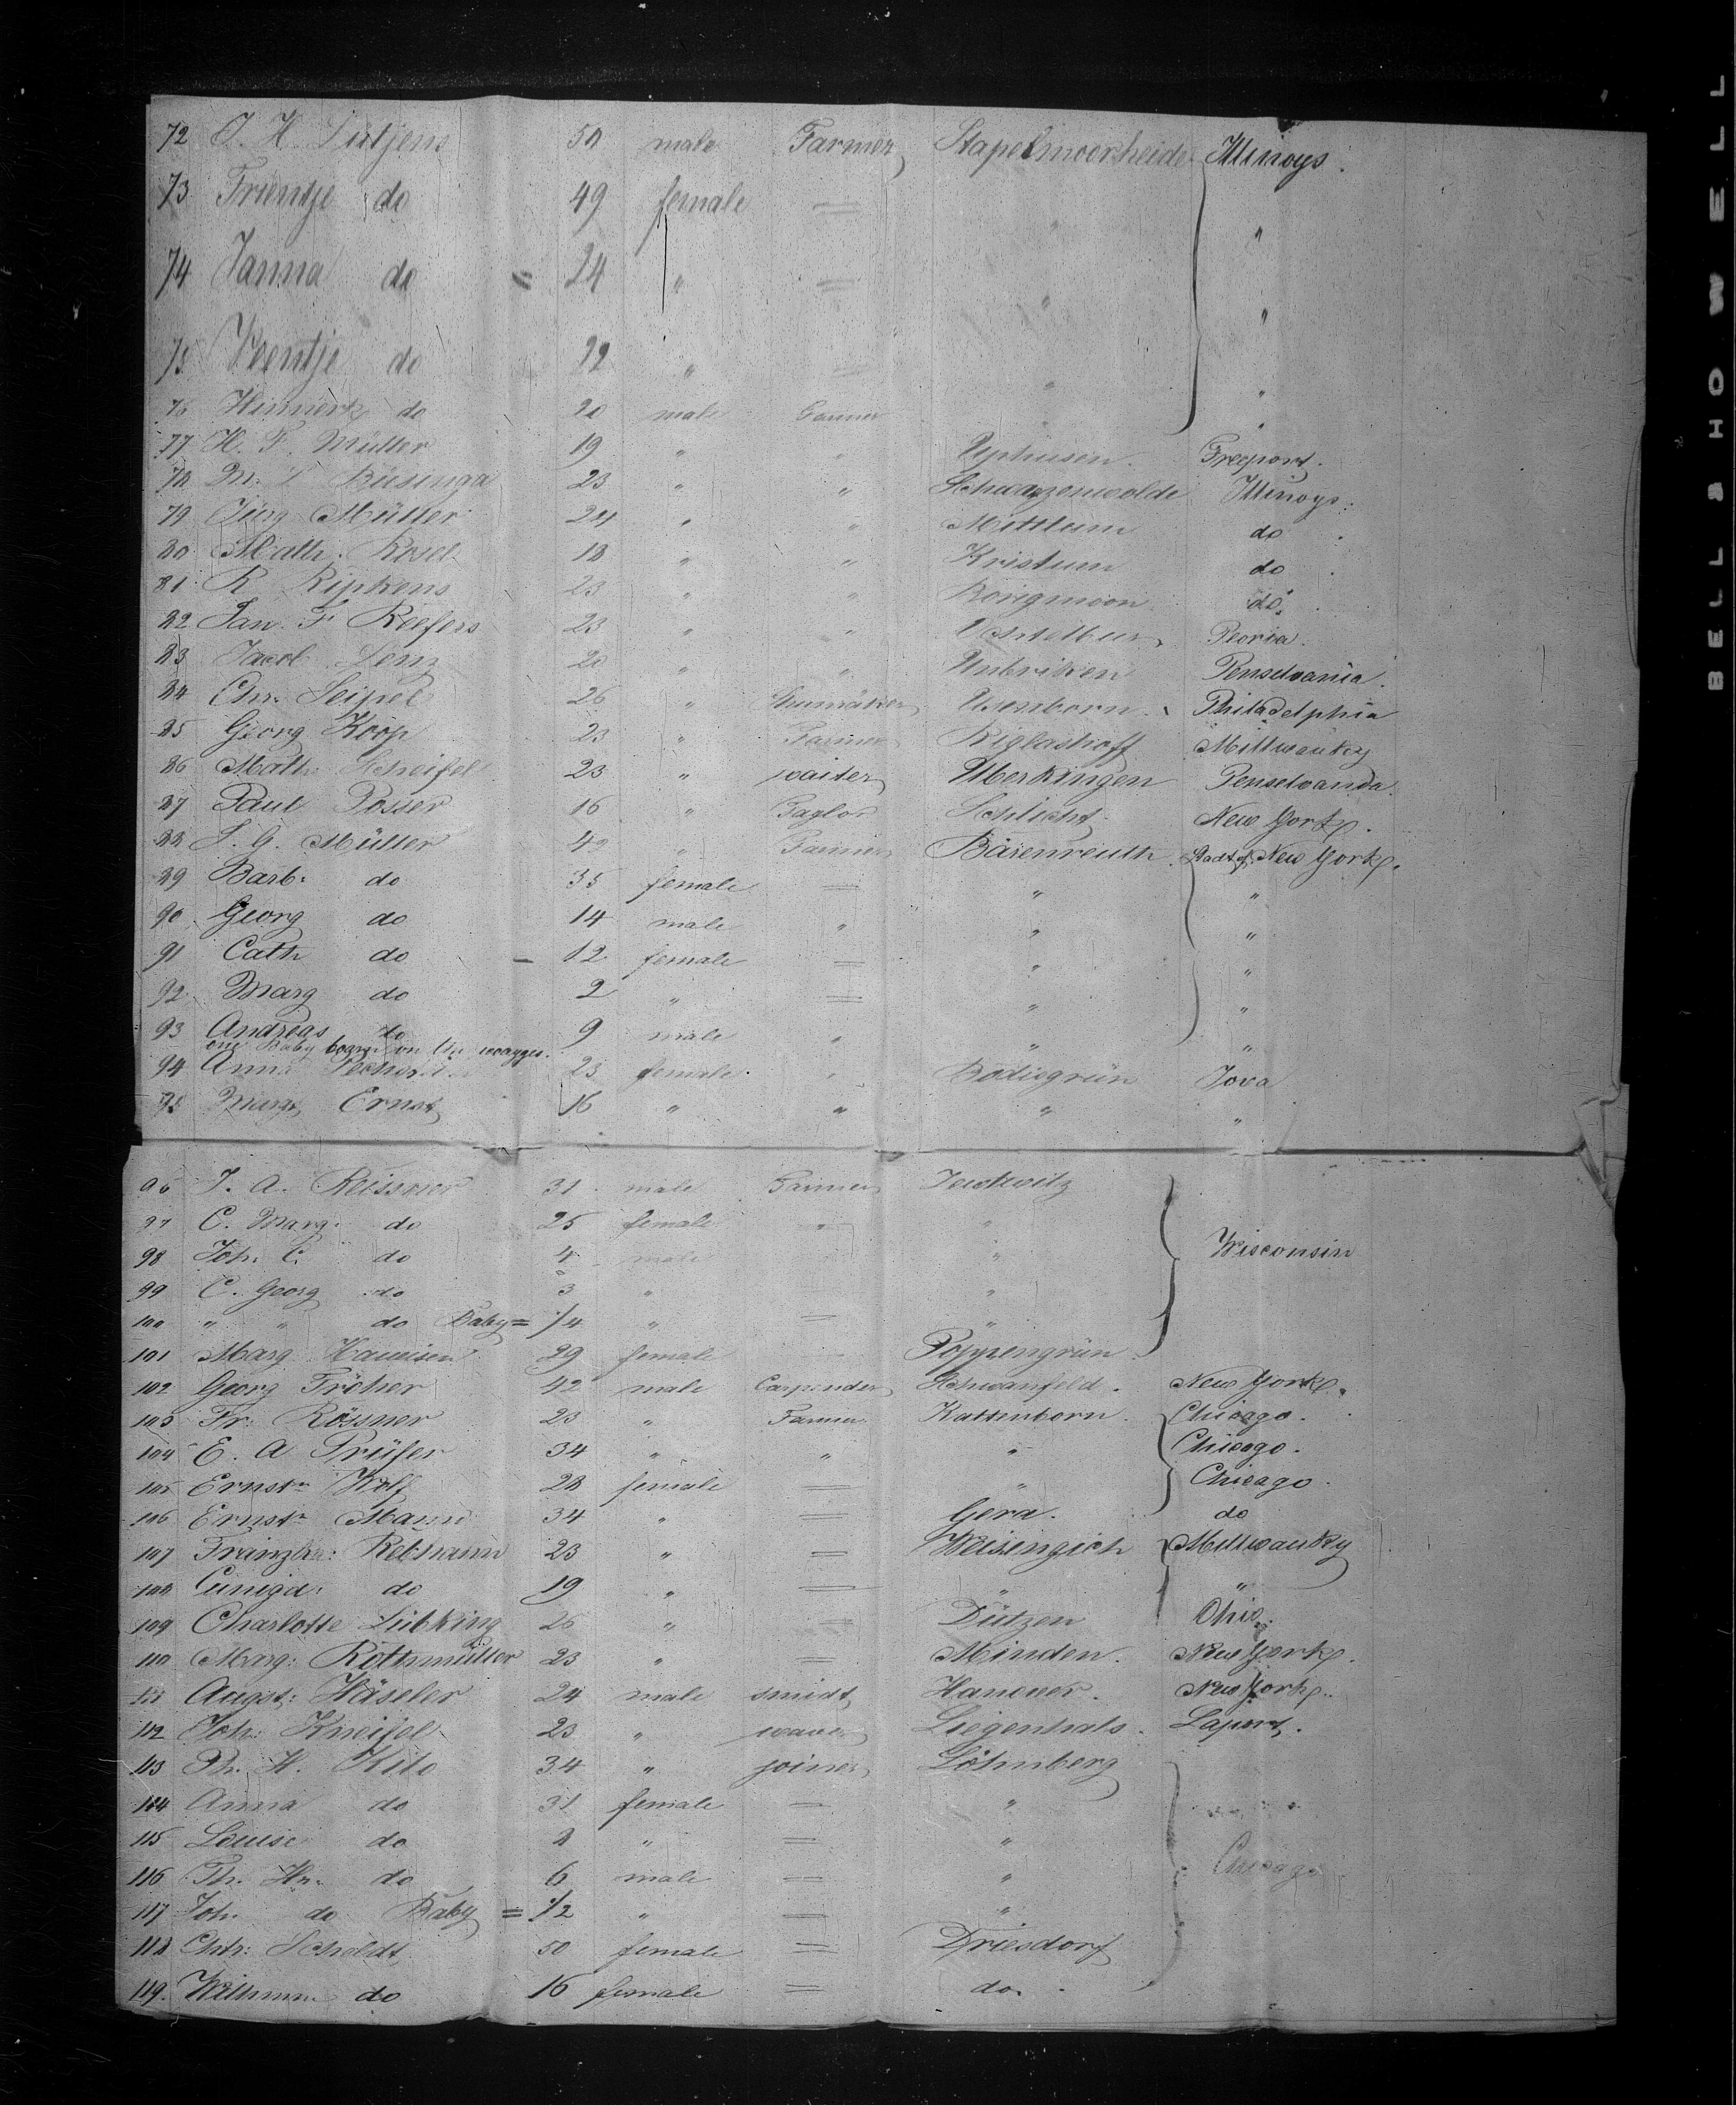 72 J. H. Lütjens 50 male Farmer Stapelmoorheide Illinoys.
73 Trientje do 49 female = " "
74 Janna do = 24 " = " "
75 Weentje do 22 " = " "
76 Hinnerk do 20 male Farmer " "
77 H. F. Müller 19 " " Uphusen. Freeport.
78 M. Büsinga 23 " " Schwagzenwolde Illinoys.
79 Jürg Müller 24 " " Mittlum do
80 Math. Rosel 18 " " Kristum do
81 R. Ripkens 23 " " do.
82 Jan. F. Roefers 23 " " Peoria.
83 Jacob Lenz 20 " " Unbriken Penselvania.
84 Chr. Seipel 26 " Shumäker Usenborn. Philadelphia
85 Georg Koop 23 " Farmer Riglashoff Millwauky
86 Math. Scheifel 23 " waiter Uberkingen Penselvanda.
87 Paul Posser 16 " Taylor Schlicht New York.
88 J. G. Müller 42 " Farmer Bärenreuth New York.
89 Barb: do 35 female = " "
90 Georg do 14 male " " "
91 Cath do - 12 female = " "
92 Marg do 2 " = " "
93 Andreas do 9 male " " "
one Baby boarn on the woayges.
94 Anna 23 female. " Bödisgrün Iova
95 Marg. Ernst 16 " " " "
96 J. A. Reissner 31 male Farmer
97 C. Marg: do 25 female " "
98 Joh. C. do 4 male " Wisconsin
99 C. Georg do 3 " "
100 " " do Baby = 1/4 " = "
101 Marg Haueisen 29 female Poppengrün
102 Georg Fröher 42 male Carpinder Schwanfeld. New York.
103 Fr. Rössner 23 " Farmer Kattenborn. Chicago.
104 E. A Prüfer 34 " " " Chicago.
105 Ernstn Wolf 28 female = " Chicago.
106 Ernstn Mann 34 " = Gera. do
107 Franzka: Rebhann 23 " = Weisingich Millwauky
108 Cuniga: do 19 " = " "
109 Charlotte Lübking 26 " = Dützen Ohio.
110 Marg: Rothmüller 23 " = Minden. New York.
111 Augst: Häseler 24 male smidt Hanover. New York.
112 Joh: Kneifel 23 " waver Ziegenhals. Laport.
113 Ph. H. Kilo 34 " joiner Löhnberg
114 Anna do 31 female = "
115 Louise do 8 " = "
116 Th. Hn. do 6 male = " Chicago
117 Joh. do Baby = 1/2 " = "
118 Chtr: Scholdt 50 female = Driesdorf
119. Wilhmne do 16 female = do.
BELL & HOWELL